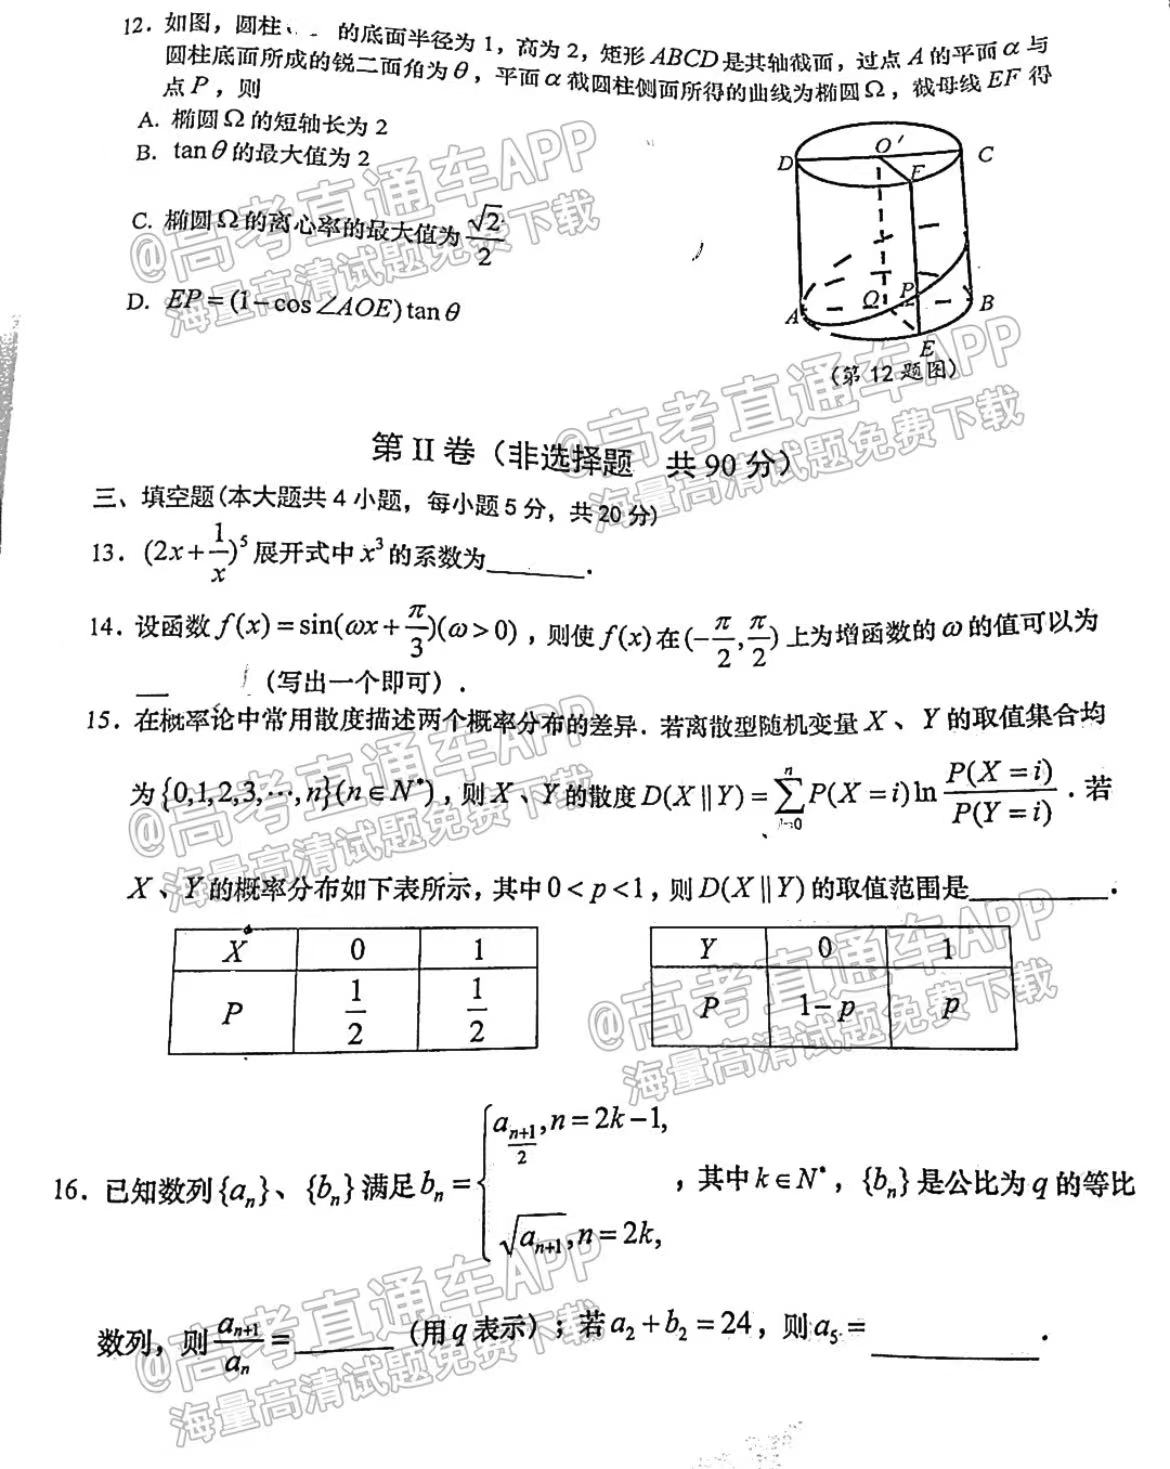 12. 如图，圆柱 的底面半径为 1，高为 2，矩形 ABCD 是其轴截面，过点 A 的平面 α 与
圆柱底面所成的锐二面角为 θ，平面 α 截圆柱侧面所得的曲线为椭圆 Ω，截母线 EF 得
点 P，则
A. 椭圆 Ω 的短轴长为 2
B. tanθ 的最大值为 2
C. 椭圆 Ω 的离心率的最大值为 √2/2
D. EP = (1−cos∠AOE)tanθ
D O' F C
A O P B
E
(第 12 题图)
第 II 卷（非选择题 共 90 分）
三、填空题(本大题共 4 小题，每小题 5 分，共 20 分)
13. (2x+1/x)^5 展开式中 x^3 的系数为______.
14. 设函数 f(x)=sin(ωx+π/3)(ω>0)，则使 f(x) 在 (−π/2, π/2) 上为增函数的 ω 的值可以为
（写出一个即可）.
15. 在概率论中常用散度描述两个概率分布的差异. 若离散型随机变量 X、Y 的取值集合均
为 {0,1,2,3,⋯,n}(n∈N*)，则 X、Y 的散度 D(X‖Y)=∑_{i=0}^{n} P(X=i)ln P(X=i)/P(Y=i). 若
X、Y 的概率分布如下表所示，其中 0<p<1，则 D(X‖Y) 的取值范围是______.
X 0 1
P 1/2 1/2
Y 0 1
P 1−p p
16. 已知数列 {a_n}、{b_n} 满足 b_n = { a_{(n+1)/2}, n=2k−1, √a_{n+1}, n=2k, ，其中 k∈N*，{b_n} 是公比为 q 的等比
数列，则 a_{n+1}/a_n = ______（用 q 表示）；若 a_2+b_2=24，则 a_5 = ______.
@高考直通车APP
海量高清试题免费下载
@高考直通车APP
海量高清试题免费下载
@高考直通车APP
海量高清试题免费下载
@高考直通车APP
海量高清试题免费下载
@高考直通车APP
海量高清试题免费下载